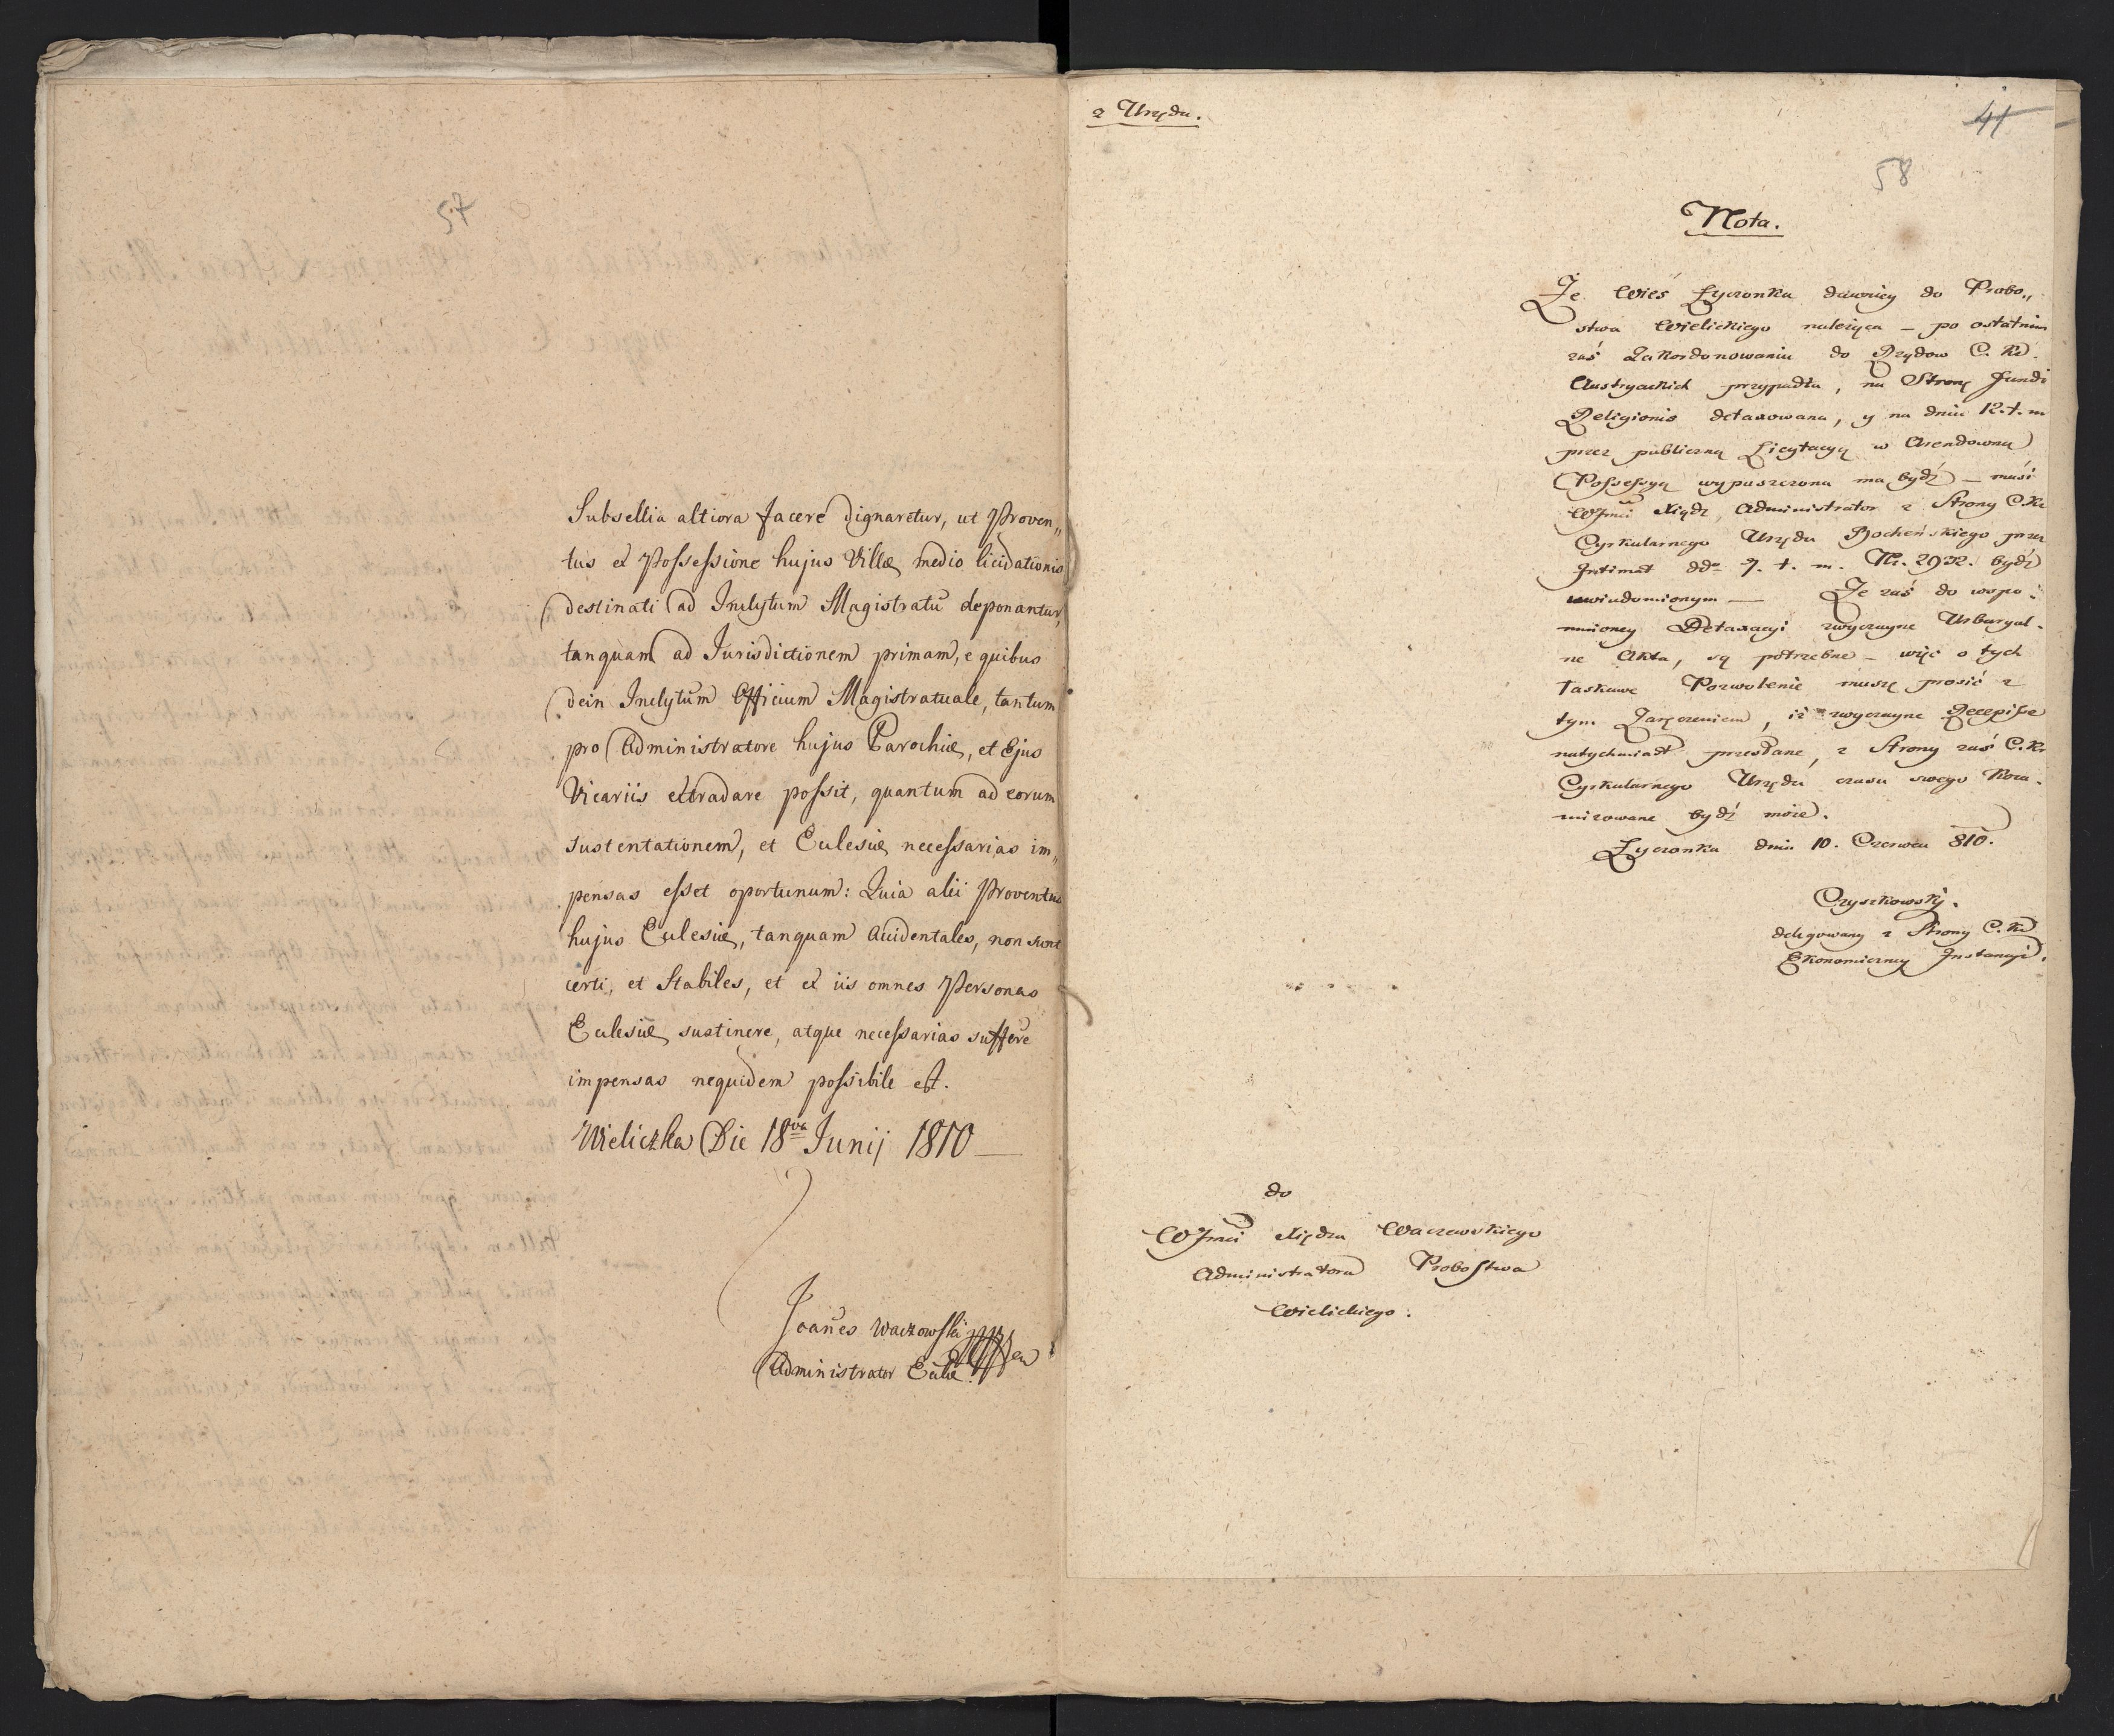 57
Subsellia altiora facere dignaretur, ut Proven„
tus ex Possessione hujus Villæ medio licidationis
destinati ad Inclytum Magistratũ deponantur,
tanquam ad Jurisdictionem primam, e quibus
dein Inclytum Officium Magistratuale, tantum
pro Administratore hujus Parochiæ, et Ejus
Vicariis extradare possit, quantum ad eorum
sustentationem, et Eclesiæ necessarias im„
pensas esset oportunum: Quia alii Proventus
hujus Eclesiæ, tanquam Accidentales, non sunt
certi, et Stabiles, et ex iis omnes Personas
Eclesiæ sustinere, atque necessarias sufferre
impensas nequidem possibile est.
Wieliczka Die 18va Junij 1810
Joañes Waczowski
Administrator Eclæ.
z Urzędu.
41
58
Nota.
Że Wieś Łyczonka dawniey do Probo„
stwa Wielickiego należąca – po ostatnim
zaś Zakordonowaniu do Rządow C. K.
Austryackich przypadła, na Stronę Fundi
Religionis detaxowana, y na dniu 12. t. m
przez publiczną Licytacyą w Arendowną
Possessyą wypuszczona ma bydź – musi
WJmć Xiądz Administrator z Strony C. K.
Cyrkularnego Urzędu Bocheńskiego przez
Intimat dd° 7. t. m. Nr. 2932. bydź
uwiadomionym — Że zaś do wspo-
mnioney Detaxacyi zwyczayne Urbaryal-
ne Akta, są potrzebne – więc o tych
łaskawe Pozwolenie muszę prosić z
tym Zaręczeniem, iż zwyczayne Recepisse
natychmiast przesłane, z Strony zaś C. K.
Cyrkularnego Urzędu czasu swego
bydź może.
Łyczonka dnia 10. Czerwca 810.
Czyszkowsky.
delegowany z Strony C. K.
Ekonomiczney Instancyi.
do
WJmci Xiędza Waczowskiego
Administratora Probostwa
Wielickiego.